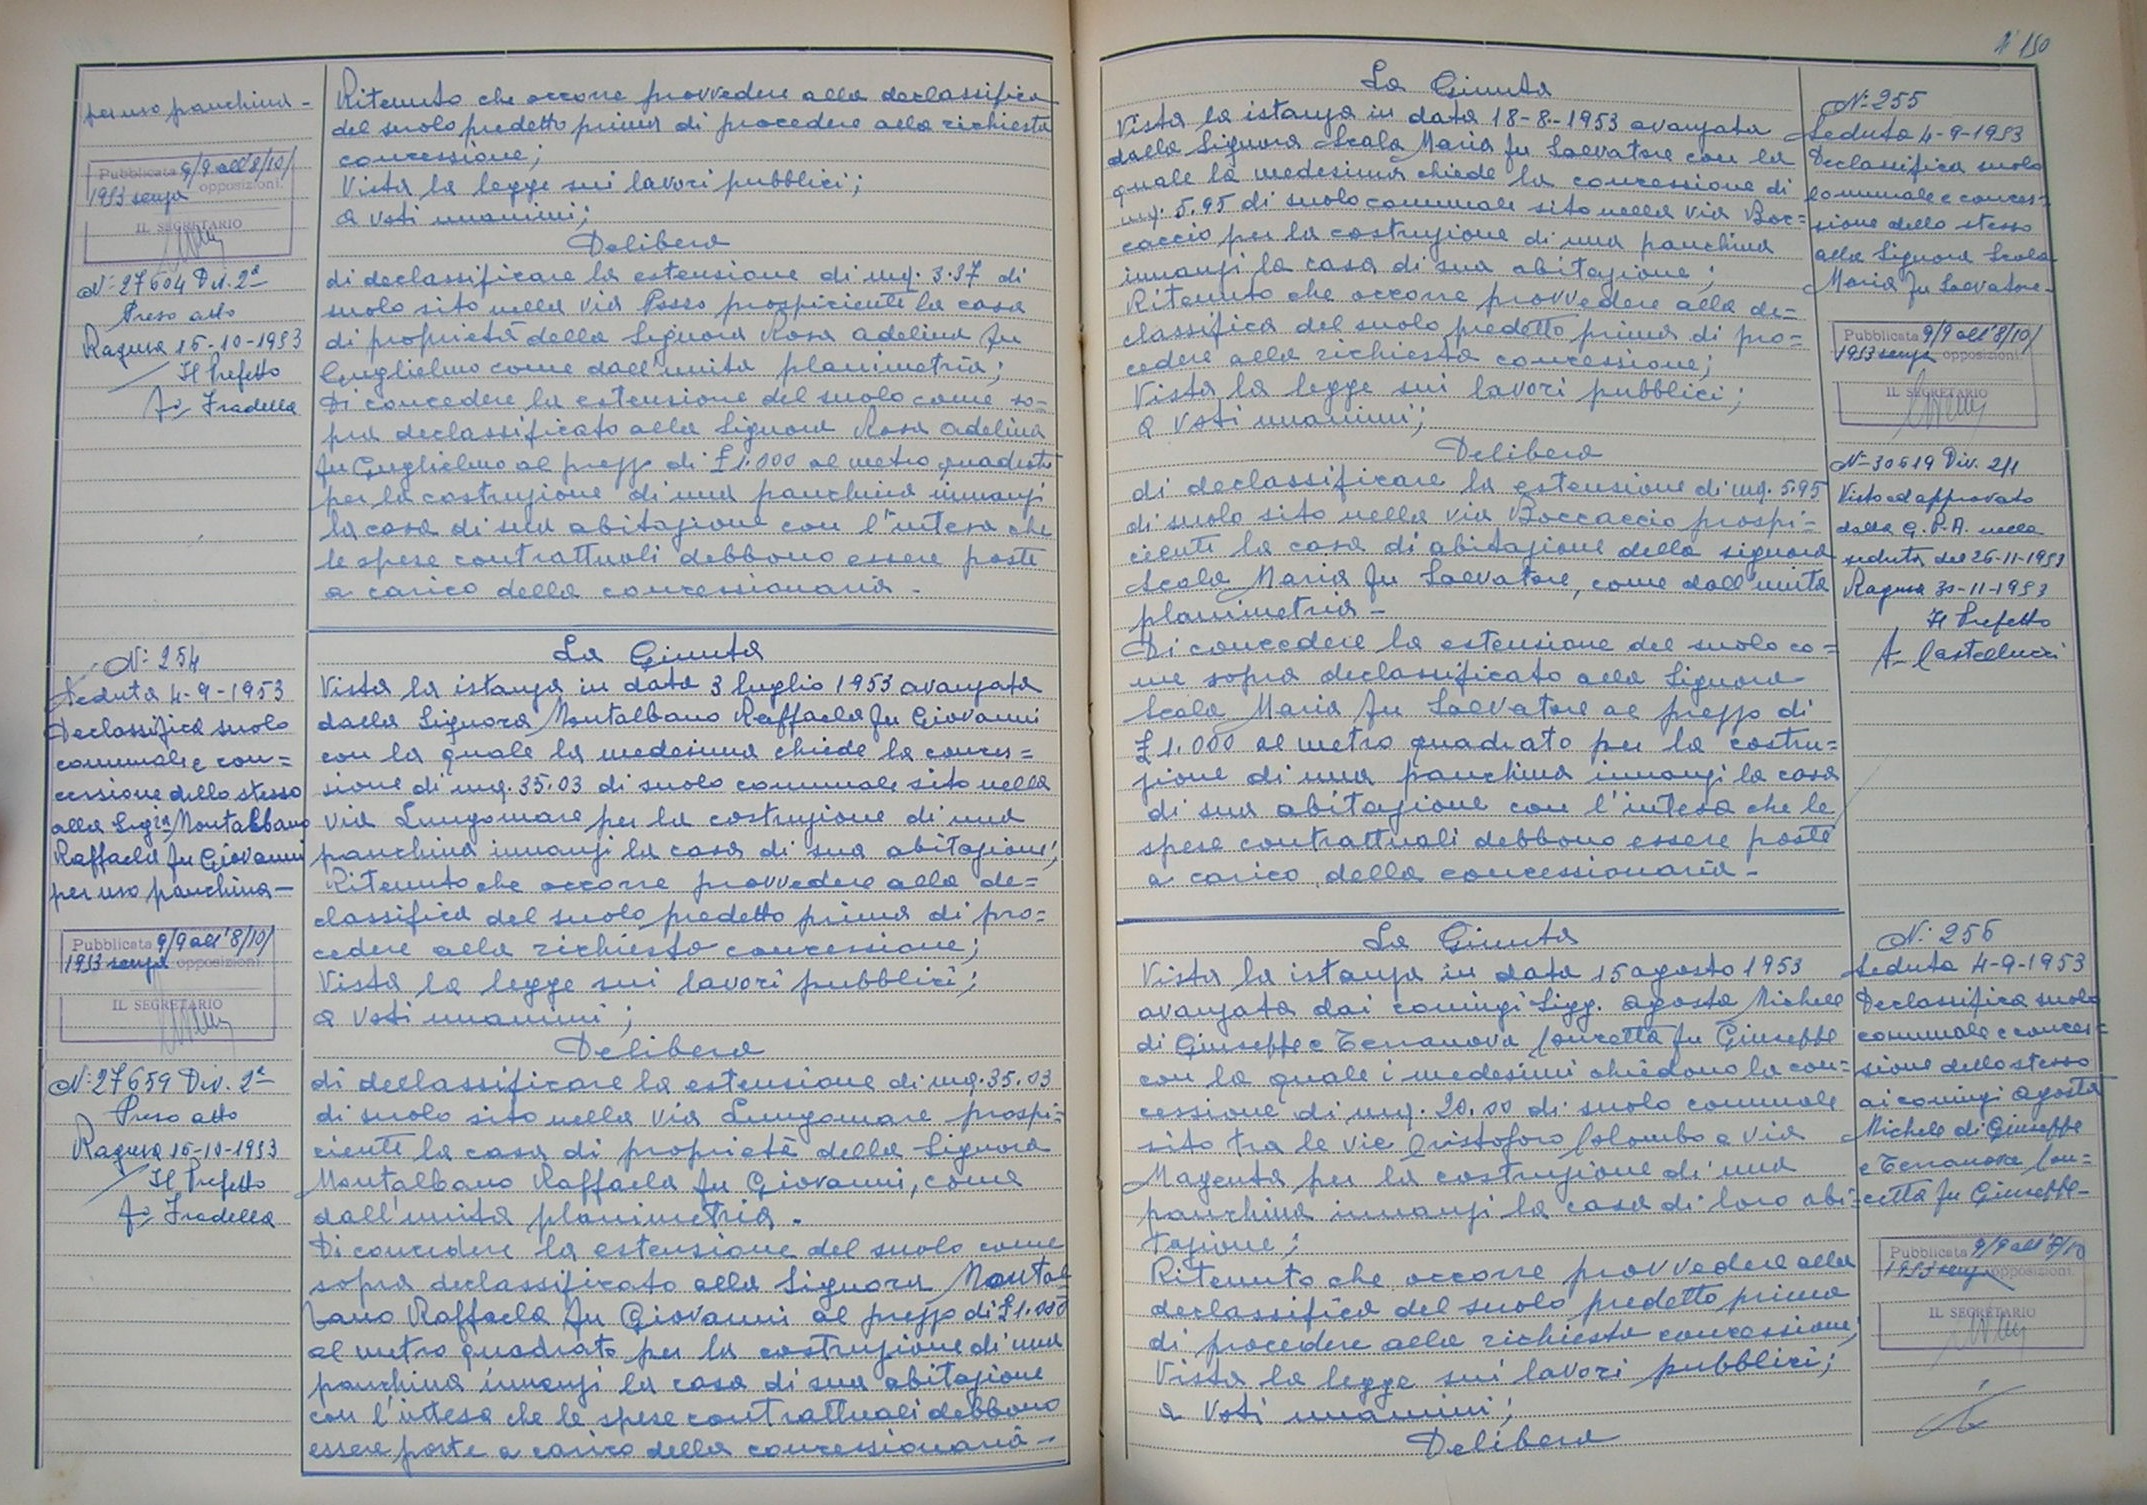 per uso panchina -
Pubblicata 9/9 all'8/10/
1953 senza opposizioni.
IL SEGRETARIO
N: 27604 Div. 2ª
Preso atto
Ragusa 15-10-1953
Il Prefetto
Fradella
N: 254
Seduta 4-9-1953
Declassifica suolo
comunale e con=
cessione dello stesso
alla Sig.ra Montalbano
Raffaela fu Giovanni
per uso panchina -
Pubblicata 9/9 all'8/10/
1953 senza opposizioni.
IL SEGRETARIO
N: 27659 Div. 2ª
Preso atto
Ragusa 15-10-1953
Il Prefetto
Fradella
Ritenuto che occorre provvedere alla declassifica
del suolo predetto prima di procedere alla richiesta
concessione;
Vista la legge sui lavori pubblici;
a voti unanimi;
Delibera
di declassificare la estensione di mq. 3.37 di
suolo sito nella via Posso prospiciente la casa
di proprietà della Signora Rosa Adelina fu
Guglielmo come dall'unita planimetria;
Di concedere la estensione del suolo come so=
pra declassificato alla Signora Rosa Adelina
fu Guglielmo al prezzo di £ 1.000 al metro quadrato
per la costruzione di una panchina innanzi
la casa di sua abitazione con l'intesa che
le spese contrattuali debbono essere poste
a carico della concessionaria -
La Giunta
Vista la istanza in data 3 luglio 1953 avanzata
dalla Signora Montalbano Raffaela fu Giovanni
con la quale la medesima chiede la conces=
sione di mq. 35.03 di suolo comunale sito nella
via Lungomare per la costruzione di una
panchina innanzi la casa di sua abitazione;
Ritenuto che occorre provvedere alla de=
classifica del suolo predetto prima di pro=
cedere alla richiesta concessione;
Vista la legge sui lavori pubblici;
a voti unanimi;
Delibera
di declassificare la estensione di mq. 35.03
di suolo sito nella via Lungomare prospi=
ciente la casa di proprietà della Signora
Montalbano Raffaela fu Giovanni, come
dall'unita planimetria.
Di concedere la estensione del suolo come
sopra declassificato alla Signora Montal
bano Raffaela fu Giovanni al prezzo di £ 1.000
al metro quadrato per la costruzione di una
panchina innanzi la casa di sua abitazione
con l'intesa che le spese contrattuali debbono
essere poste a carico della concessionaria -
N° 150
La Giunta
Vista la istanza in data 18-8-1953 avanzata
dalla Signora Scala Maria fu Salvatore con la
quale la medesima chiede la concessione di
mq. 5.95 di suolo comunale sito nella via Boc=
caccio per la costruzione di una panchina
innanzi la casa di sua abitazione;
Ritenuto che occorre provvedere alla de=
classifica del suolo predetto prima di pro=
cedere alla richiesta concessione;
Vista la legge sui lavori pubblici;
a voti unanimi;
Delibera
di declassificare la estensione di mq. 5.95
di suolo sito nella via Boccaccio prospi=
ciente la casa di abitazione della signora
Scala Maria fu Salvatore, come dall'unita
planimetria -
Di concedere la estensione del suolo co=
me sopra declassificato alla Signora
Scala Maria fu Salvatore al prezzo di
£ 1.000 al metro quadrato per la costru=
zione di una panchina innanzi la casa
di sua abitazione con l'intesa che le
spese contrattuali debbono essere poste
a carico della concessionaria -
La Giunta
Vista la istanza in data 15 agosto 1953
avanzata dai coniugi Sigg. Agosta Michele
di Giuseppe e Terranova Concetta fu Giuseppe
con la quale i medesimi chiedono la con=
cessione di mq. 20.00 di suolo comunale
sito tra le vie Cristoforo Colombo e via
Magenta per la costruzione di una
panchina innanzi la casa di loro abi=
tazione;
Ritenuto che occorre provvedere alla
declassifica del suolo predetto prima
di procedere alla richiesta concessione;
Vista la legge sui lavori pubblici;
a voti unanimi;
Delibera
N: 255
Seduta 4-9-1953
Declassifica suolo
comunale e conces=
sione dello stesso
alla Signora Scala
Maria fu Salvatore -
Pubblicata 9/9 all'8/10/
1953 senza opposizioni
IL SEGRETARIO
N: 30619 Div. 2/1
Visto ed approvato
dalla G.P.A. nella
seduta del 26-11-1953
Ragusa 30-11-1953
Il Prefetto
Castellucci
N: 256
Seduta 4-9-1953
Declassifica suolo
comunale e conces=
sione dello stesso
ai coniugi Agosta
Michele di Giuseppe
e Terranova Con=
cetta fu Giuseppe -
Pubblicata 9/9 all'8/10
1953 senza opposizioni.
IL SEGRETARIO